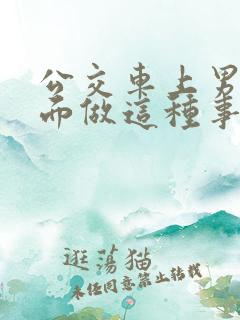 公交車上男
而做這種事
逛蕩猫
未任同意禁止转载